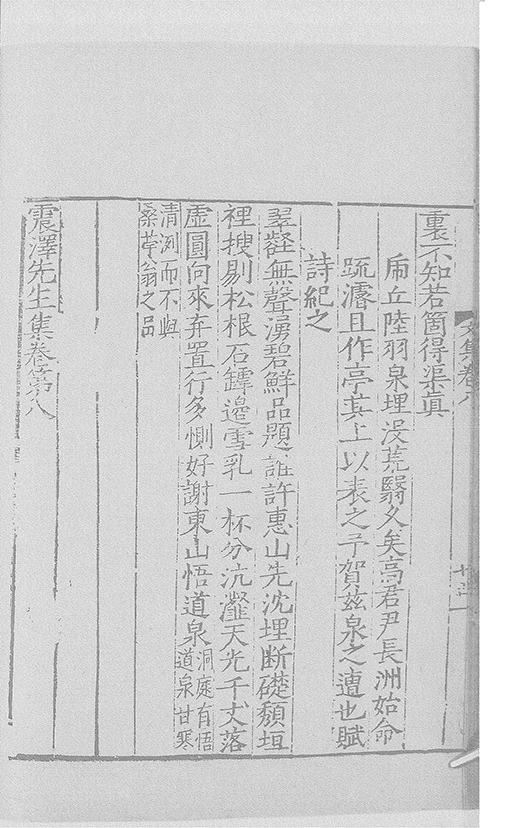 裏不知若箇得渠眞
虎丘陸羽泉埋没荒翳久矣高君尹長洲始命
䟽濬且作亭其上以表之予賀兹泉之遭也賦
詩紀之
翠㽅無聲湧碧鮮品題誰許惠山先沈埋断礎頽垣
裡搜剔松根石罅邉雪乳一杯分沆瀣天光千丈落
虚圓向來弃置行多惻好謝東山悟道泉洞庭有悟
道泉甘寒
清冽而不與
桑苧翁之品
震澤先生集卷第八
文集卷八